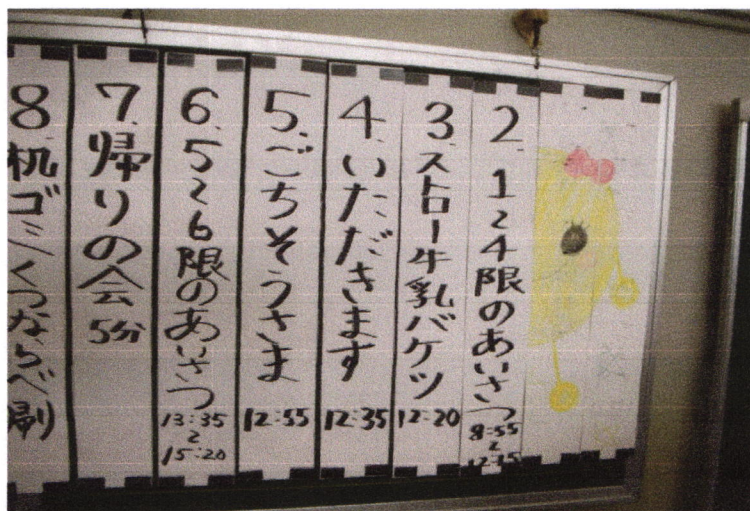 2. 1〜4限のあいさつ
8:55
〜
3. ストロー牛乳バケツ
12:20
4. いただきます
12:35
5. ごちそうさま
12:55
6. 5〜6限のあいさつ
13:35
〜
15:20
7. 帰りの会
5分
8. 机ゴミくつならべ